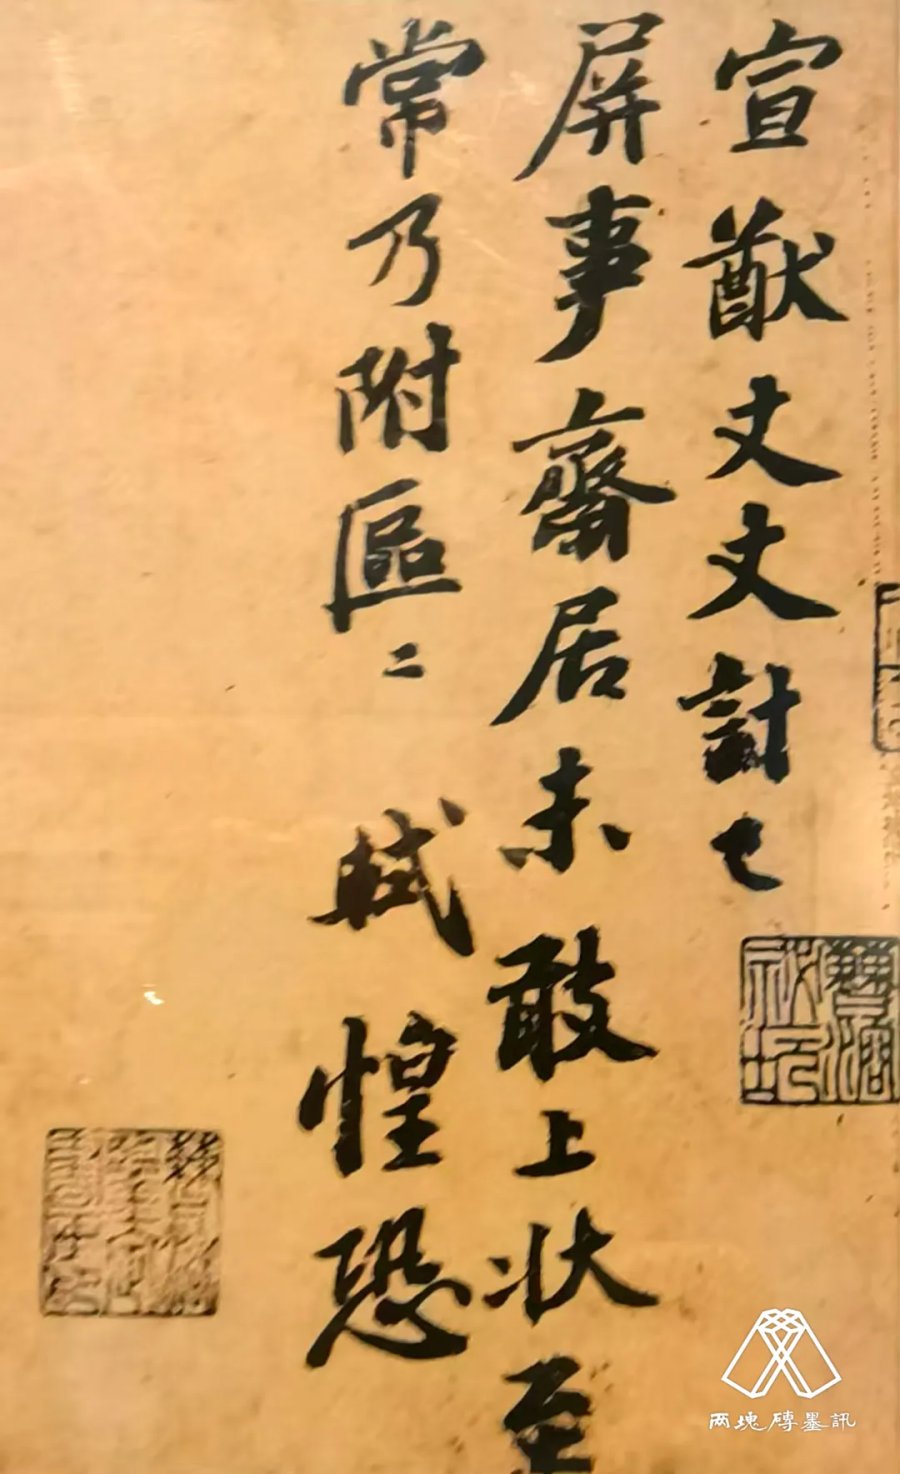 宣猷丈丈計已
屏事齋居未敢上状至
常乃附區〻
軾惶恐
兩塊磚墨訊